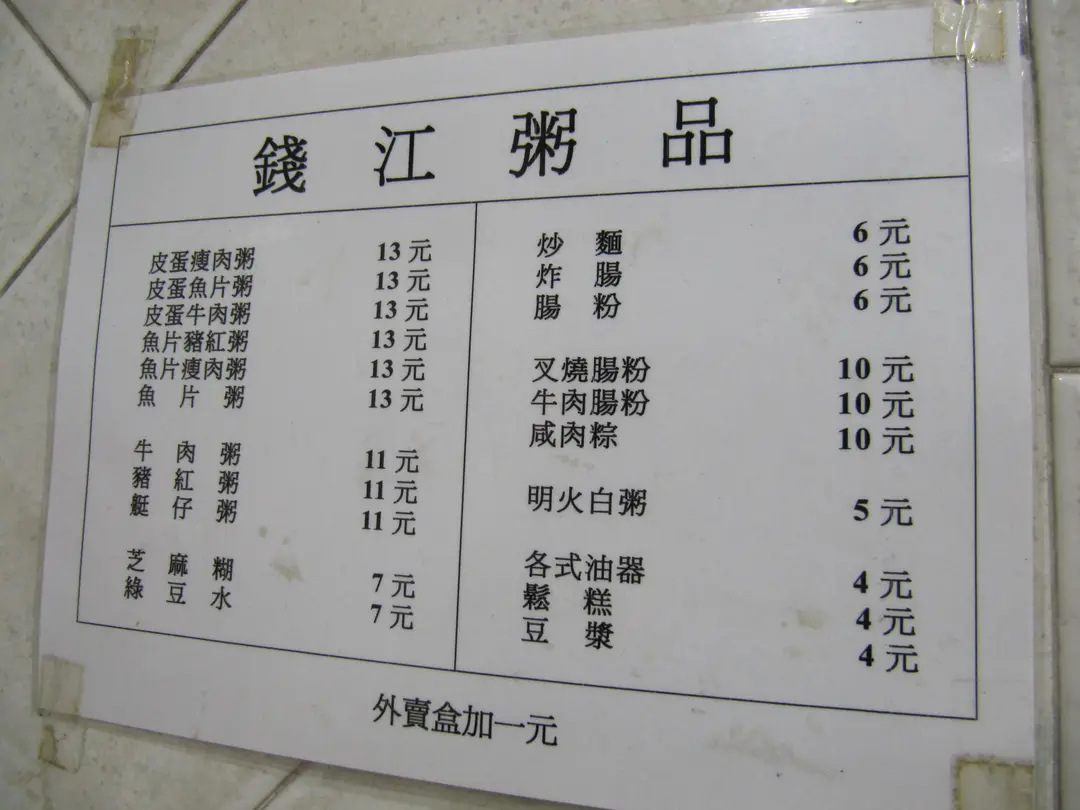 錢江粥品
皮蛋瘦肉粥 13元
皮蛋魚片粥 13元
皮蛋牛肉粥 13元
魚片豬紅粥 13元
魚片瘦肉粥 13元
魚片粥 13元
牛肉粥 11元
豬紅粥 11元
艇仔粥 11元
芝麻糊 7元
綠豆水 7元
炒麵 6元
炸腸 6元
腸粉 6元
叉燒腸粉 10元
牛肉腸粉 10元
咸肉粽 10元
明火白粥 5元
各式油器 4元
鬆糕 4元
豆漿 4元
外賣盒加一元